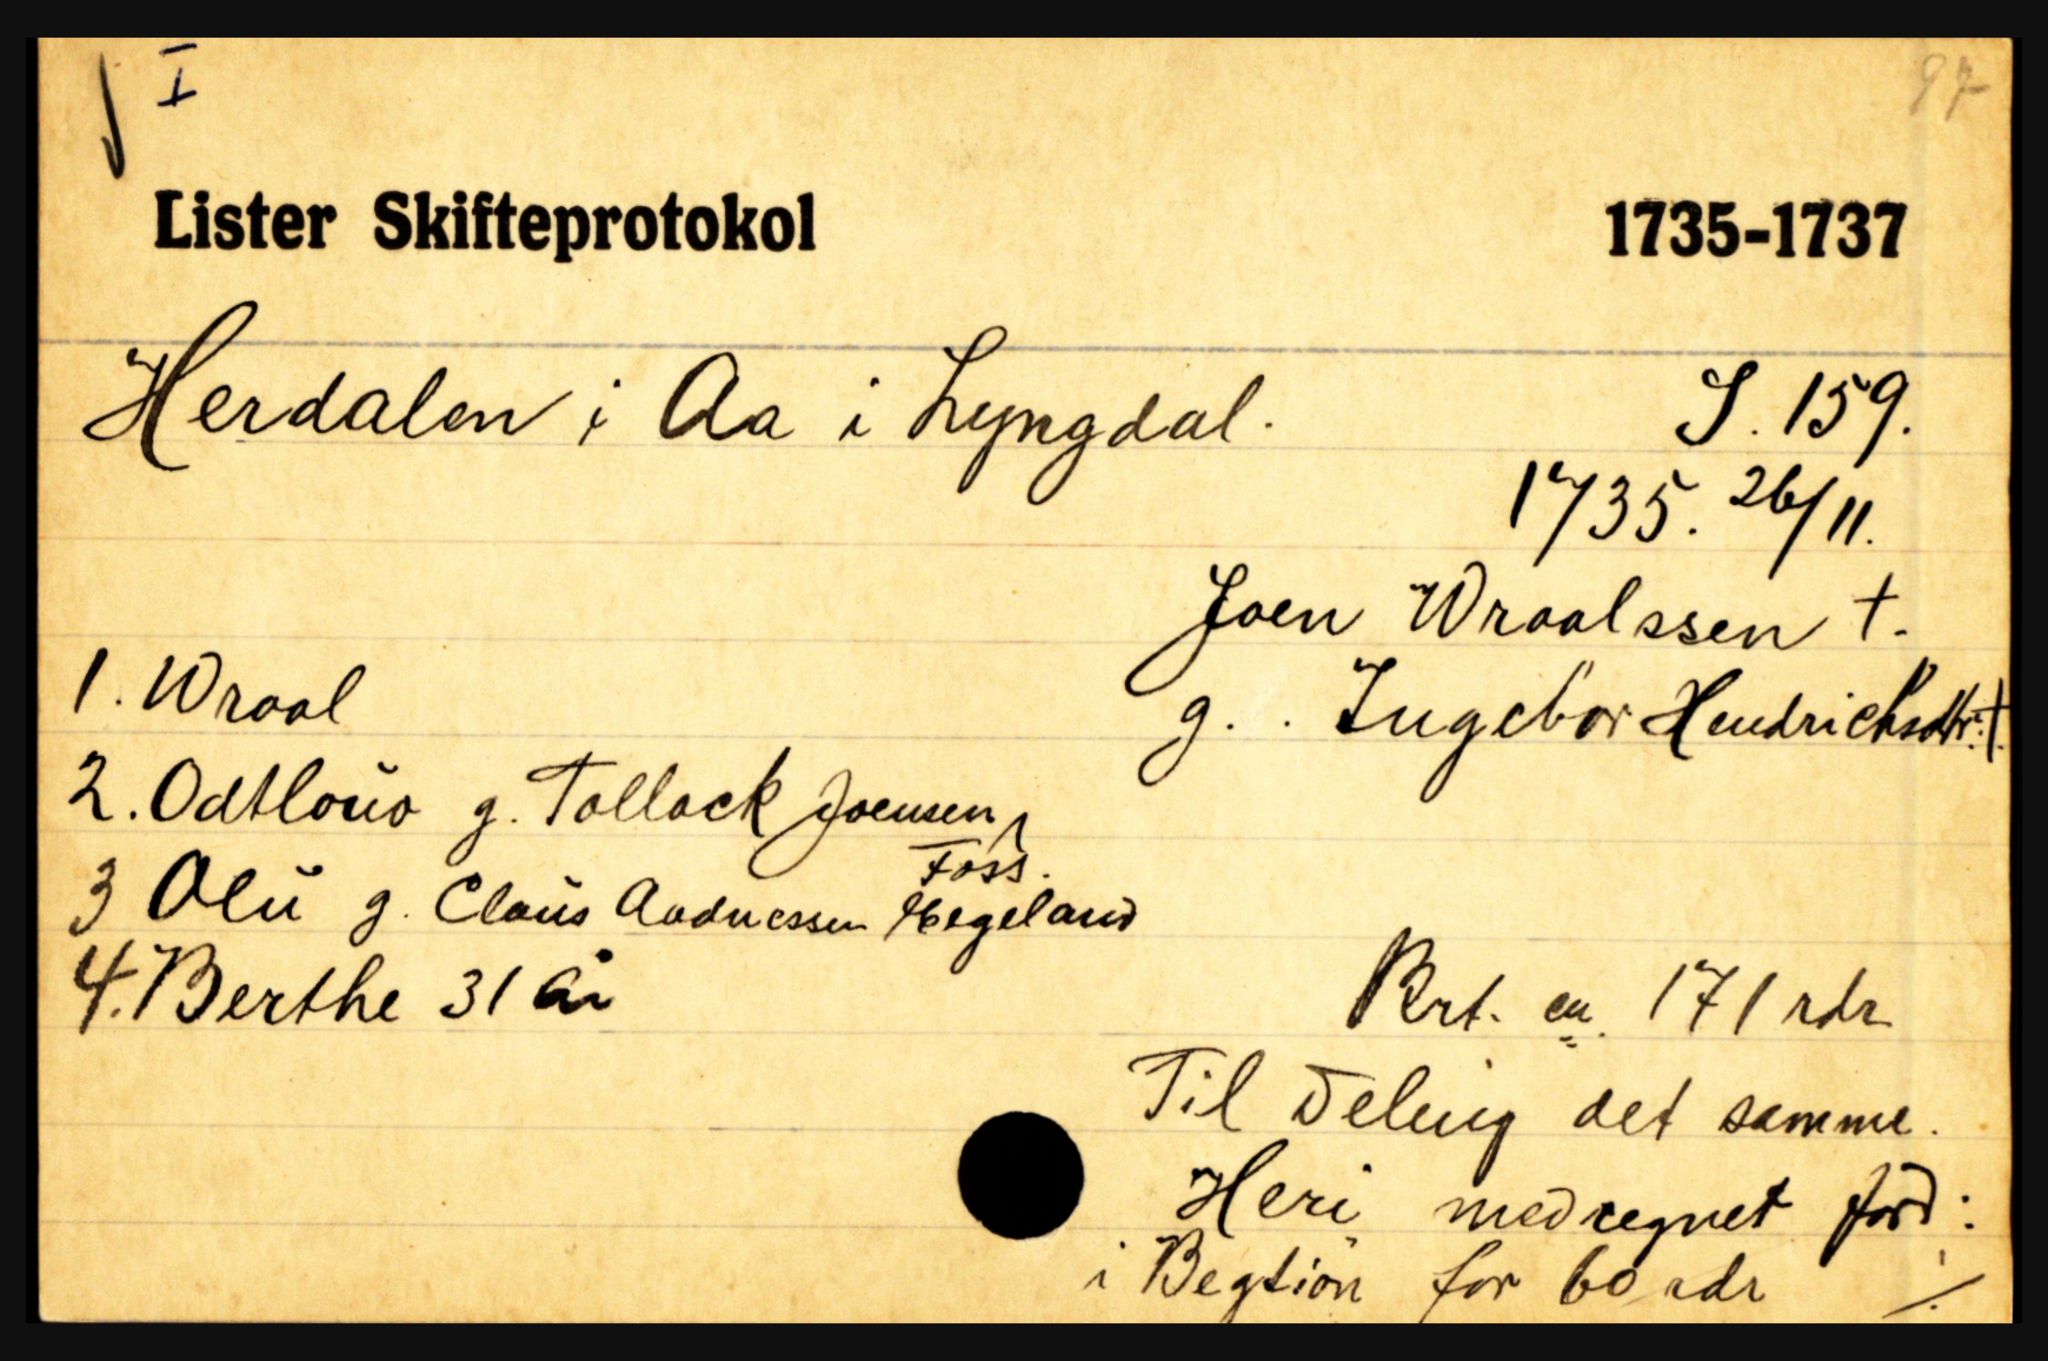 I
97
Lister Skifteprotokol 1735-1737
Herdalen i Aa i Lyngdal. S. 159.
1735. 26/11.
Joen Wraalssen †.
1. Wraal g. . Ingebor Hendrichsdtr. †.
2. Odtloŭo g. Tollack Joensen
Foss.
3 Olŭ g. Claŭs Andnessen Hegeland
4. Berthe 31 år Brt. ca. 171 rdr
Til Deling det samme.
Heri medregnet jord:
i Begtion for 60 rdr ./.